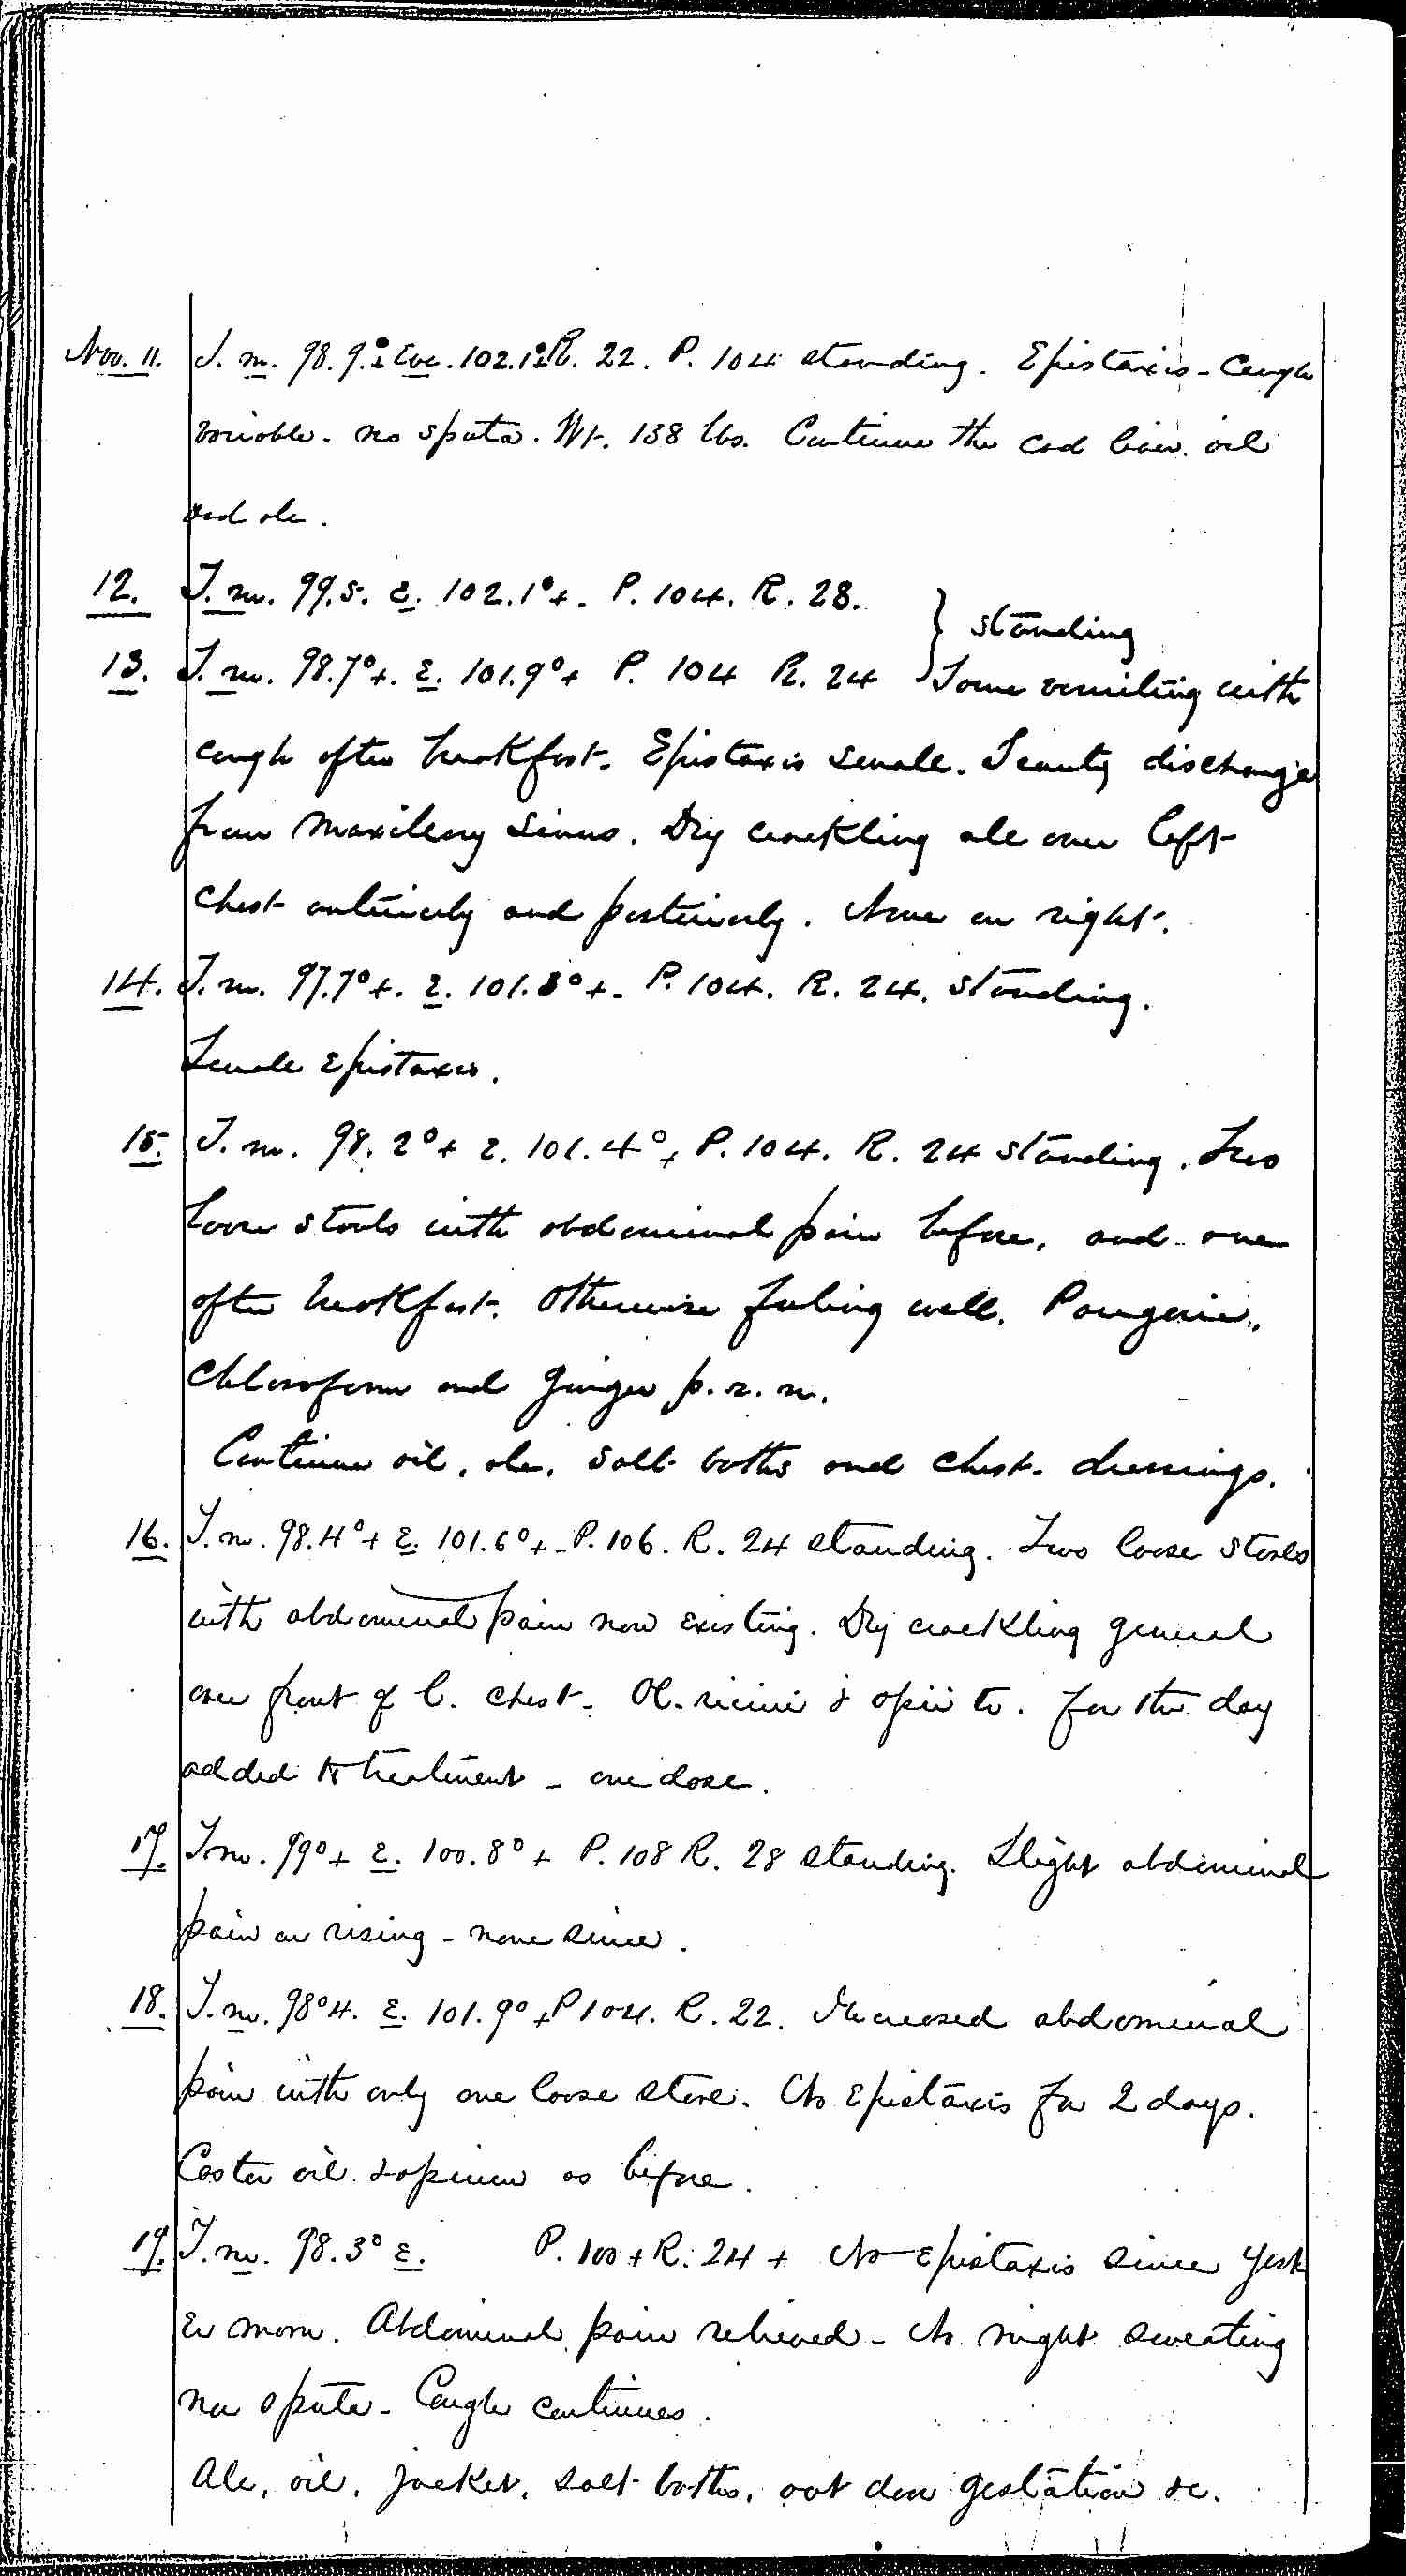 Nov. 11. T. m. 98.9°± Eve. 102.1°± R. 22. P. 104 standing. Epistaxis - Cough
variable. no sputa. Wt. 138 lbs. Continue the cod liver oil
and ale.
12. T. m. 99.5. E. 102.1°+. P. 104. R. 28.
} standing
13. T. m. 98.7°+. E. 101.9°+ P. 104 R. 24 Some vomiting with
cough after breakfast. Epistaxis small. Scanty discharge
from Maxillary Sinus. Dry crackling all over left
chest anteriorly and posteriorly. None on right.
14. T. m. 97.7°+. E. 101.8°+. P. 104. R. 24. standing.
Small Epistaxis.
15. T. m. 98.2°+ E. 101.4°+ P. 104. R. 24 standing. Two
loose stools with abdominal pain before, and one
after breakfast. Otherwise feeling well. Paregoric,
Chloroform and Ginger p. r. n.
Continue oil, ale, salt baths and chest dressings.
16. T. m. 98.4°+ E. 101.6°+ - P. 106. R. 24 standing. Two loose stools
with abdominal pain now existing. Dry crackling general
over front of l. chest. Ol. ricini & opii tr. for the day
added to treatment - one dose.
17. T m. 99°+ E. 100.8°+ P. 108 R. 28 standing. Slight abdominal
pain on rising - none since.
18. T. m. 98°4. E. 101.9°+ P 104. R. 22. Increased abdominal
pain with only one loose stool. No Epistaxis for 2 days.
Castor oil & opium as before.
19. T. m. 98.3° E. P. 100 + R. 24 + No Epistaxis since yest
er morn. Abdominal pain relieved - No night sweating
no sputa - Cough continues.
Ale, oil, jacket, salt baths, out door gestation &c.